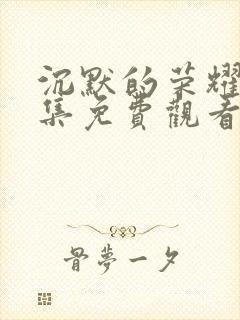 沉默的荣耀
集免費觀看
骨夢一夕